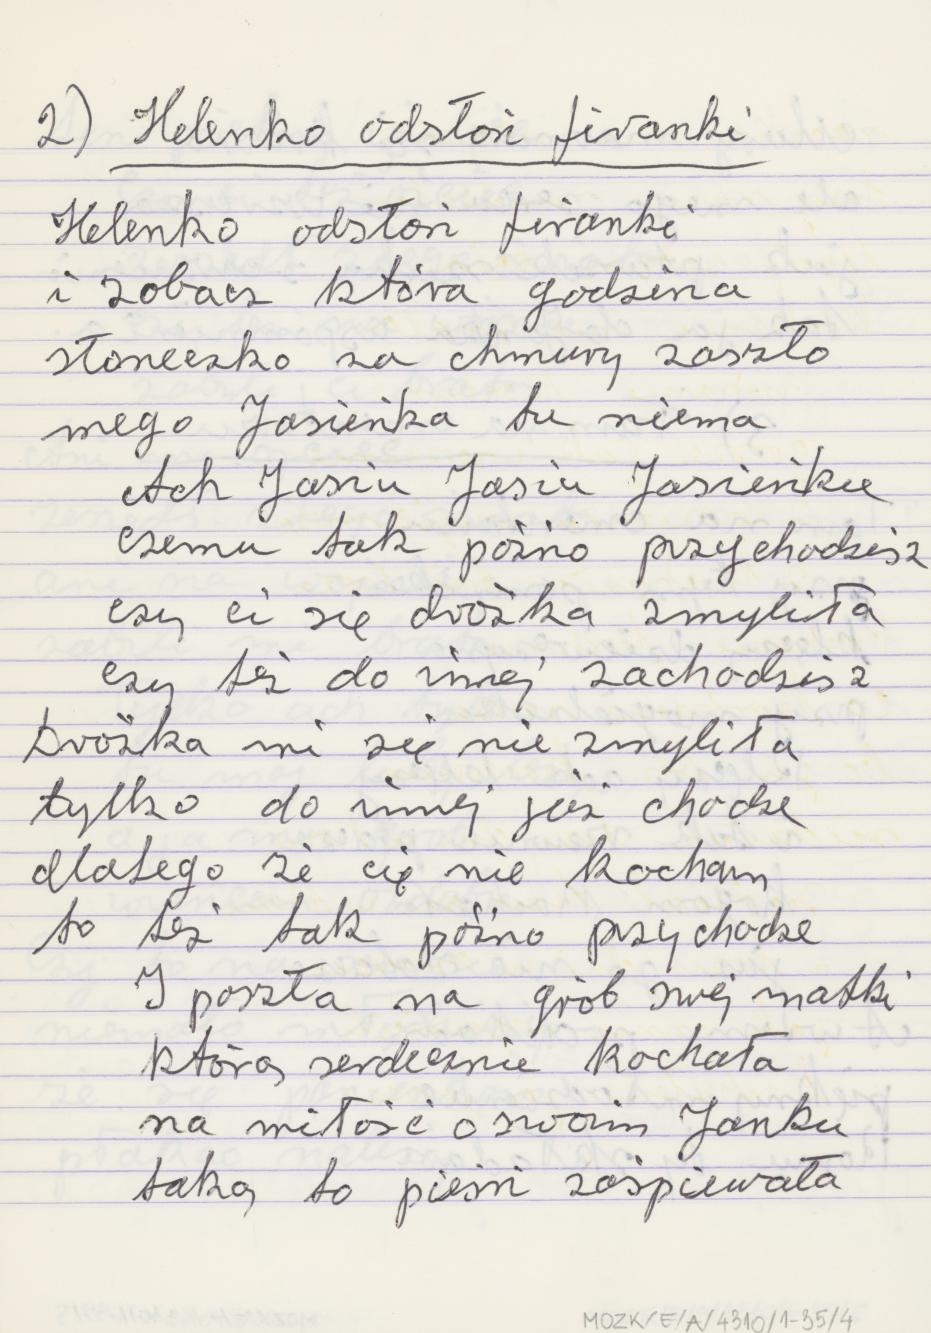 2) Helenko odsłoń firanki
Helenko odsłoń firanki
i zobacz która godzina
słoneczko za chmury zaszło
mego Jasieńka tu niema
Ach Jasiu Jasiu Jasieńku
czemu tak późno przychodzisz
czy ci się dróżka zmyliła
czy też do innej zachodzisz
Dróżka mi się nie zmyliła
tylko do innej już chodze
dlatego że cię nie kocham
to też tak późno przychodze
I poszła na grób swej matki
którą serdecznie kochała
na miłość o swoim Janku
taką to pieśń zaśpiewała
MOZK/E/A/4310/1-35/4